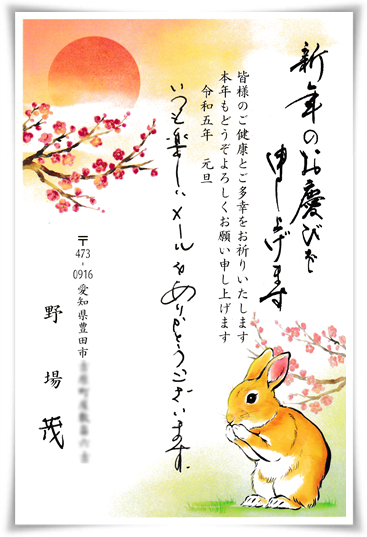 新年のお慶びを
申し上げます
皆様のご健康とご多幸をお祈りいたします
本年もどうぞよろしくお願い申し上げます
令和五年　元旦
いつも楽しいメールをありがとうございます。
〒473-0916
愛知県豊田市
野場 茂